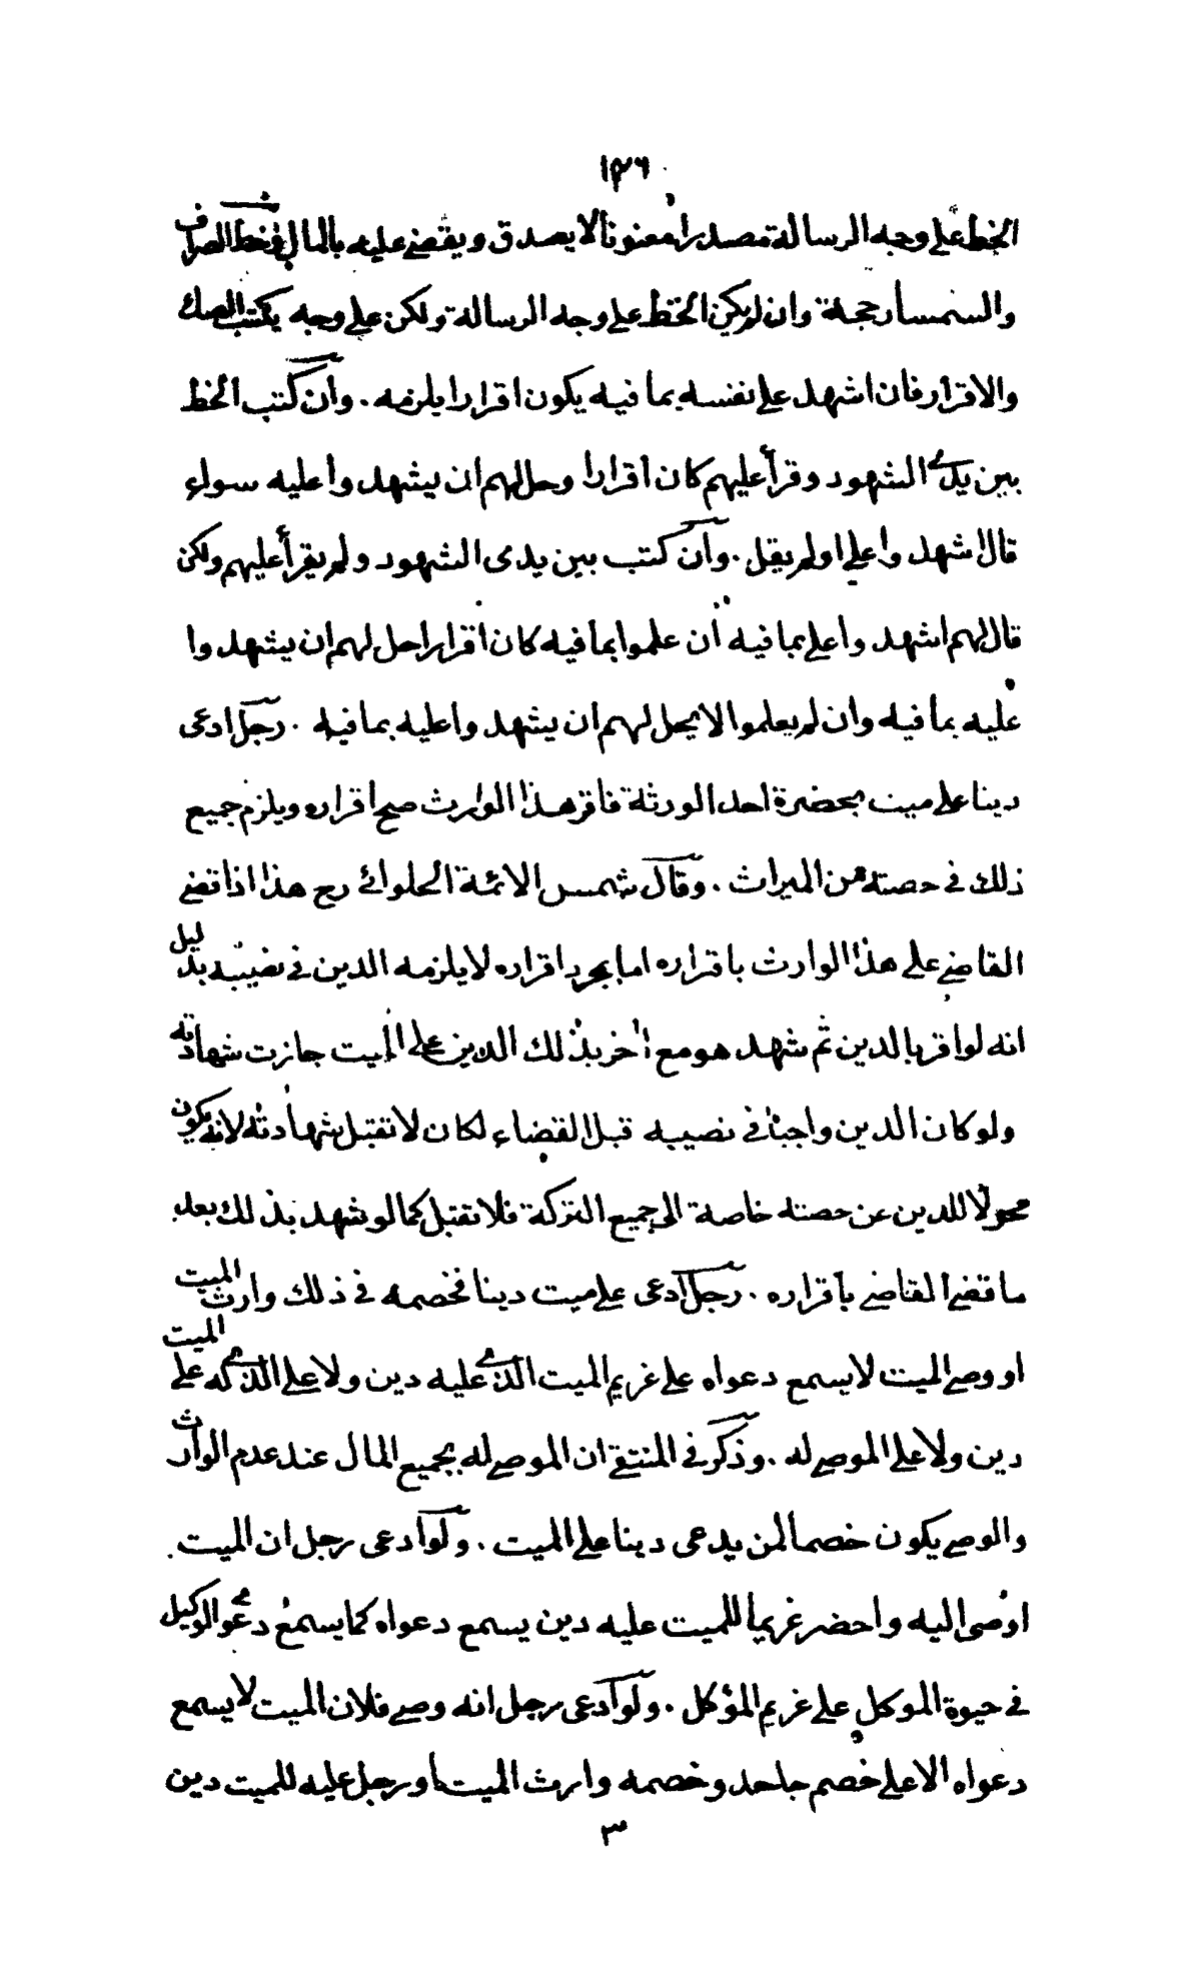 ١٢٦
الخط على وجه الرسالة مصدرا معنونا لا يصدق ويقضى عليه بالمال وخط الصراف
والسمسار حجة وان لم يكن الخط على وجه الرسالة ولكن على وجه يكتب الصك
والاقرار فان اشهد على نفسه بما فيه يكون اقرارا يلزمه . وان كتب الخط
بين يدى الشهود وقرأ عليهم كان اقرارا وحل لهم ان يشهدوا عليه سواء
قال اشهدوا على او لم يقل . وان كتب بين يدى الشهود ولم يقرأ عليهم ولكن
قال لهم اشهدوا على بما فيه أن علموا بما فيه كان اقرارا حل لهم ان يشهدوا
عليه بما فيه وان لم يعلموا لا يحل لهم ان يشهدوا عليه بما فيه . رجل ادعى
دينا على ميت بحضرة احد الورثة فاقر هذا الوارث صح اقراره ويلزم جميع
ذلك فى حصته من الميراث . وقال شمس الائمة الحلوائى رح هذا اذا قضى
القاضى على هذا الوارث باقراره اما بمجرد اقراره لا يلزمه الدين فى نصيبه بدليل
انه لو اقر بالدين ثم شهد هو مع أخر بذلك الدين على الميت جازت شهادته
ولو كان الدين واجبا فى نصيبه قبل القضاء لكان لا تقبل شهادته لانه يكون
محولا للدين عن حصته خاصة الى جميع التركة فلا تقبل كما لو شهد بذلك بعد
ما قضى القاضى باقراره . رجل ادعى على ميت دينا فخصمه فى ذلك وارث الميت
او وصى الميت لا يسمع دعواه على غريم الميت الذى عليه دين ولا على الذى له على الميت
دين ولا على الموصى له . وذكر فى المنتقى ان الموصى له بجميع المال عند عدم الوارث
والوصى يكون خصما لمن يدعى دينا على الميت . ولو ادعى رجل ان الميت
اوصى اليه واحضر غريما للميت عليه دين يسمع دعواه كما يسمع دعوى الوكيل
فى حيوة الموكل على غريم المؤكل . ولو ادعى رجل انه وصى فلان الميت لا يسمع
دعواه الا على خصم جاحد وخصمه وارث الميت او رجل عليه للميت دين
٣